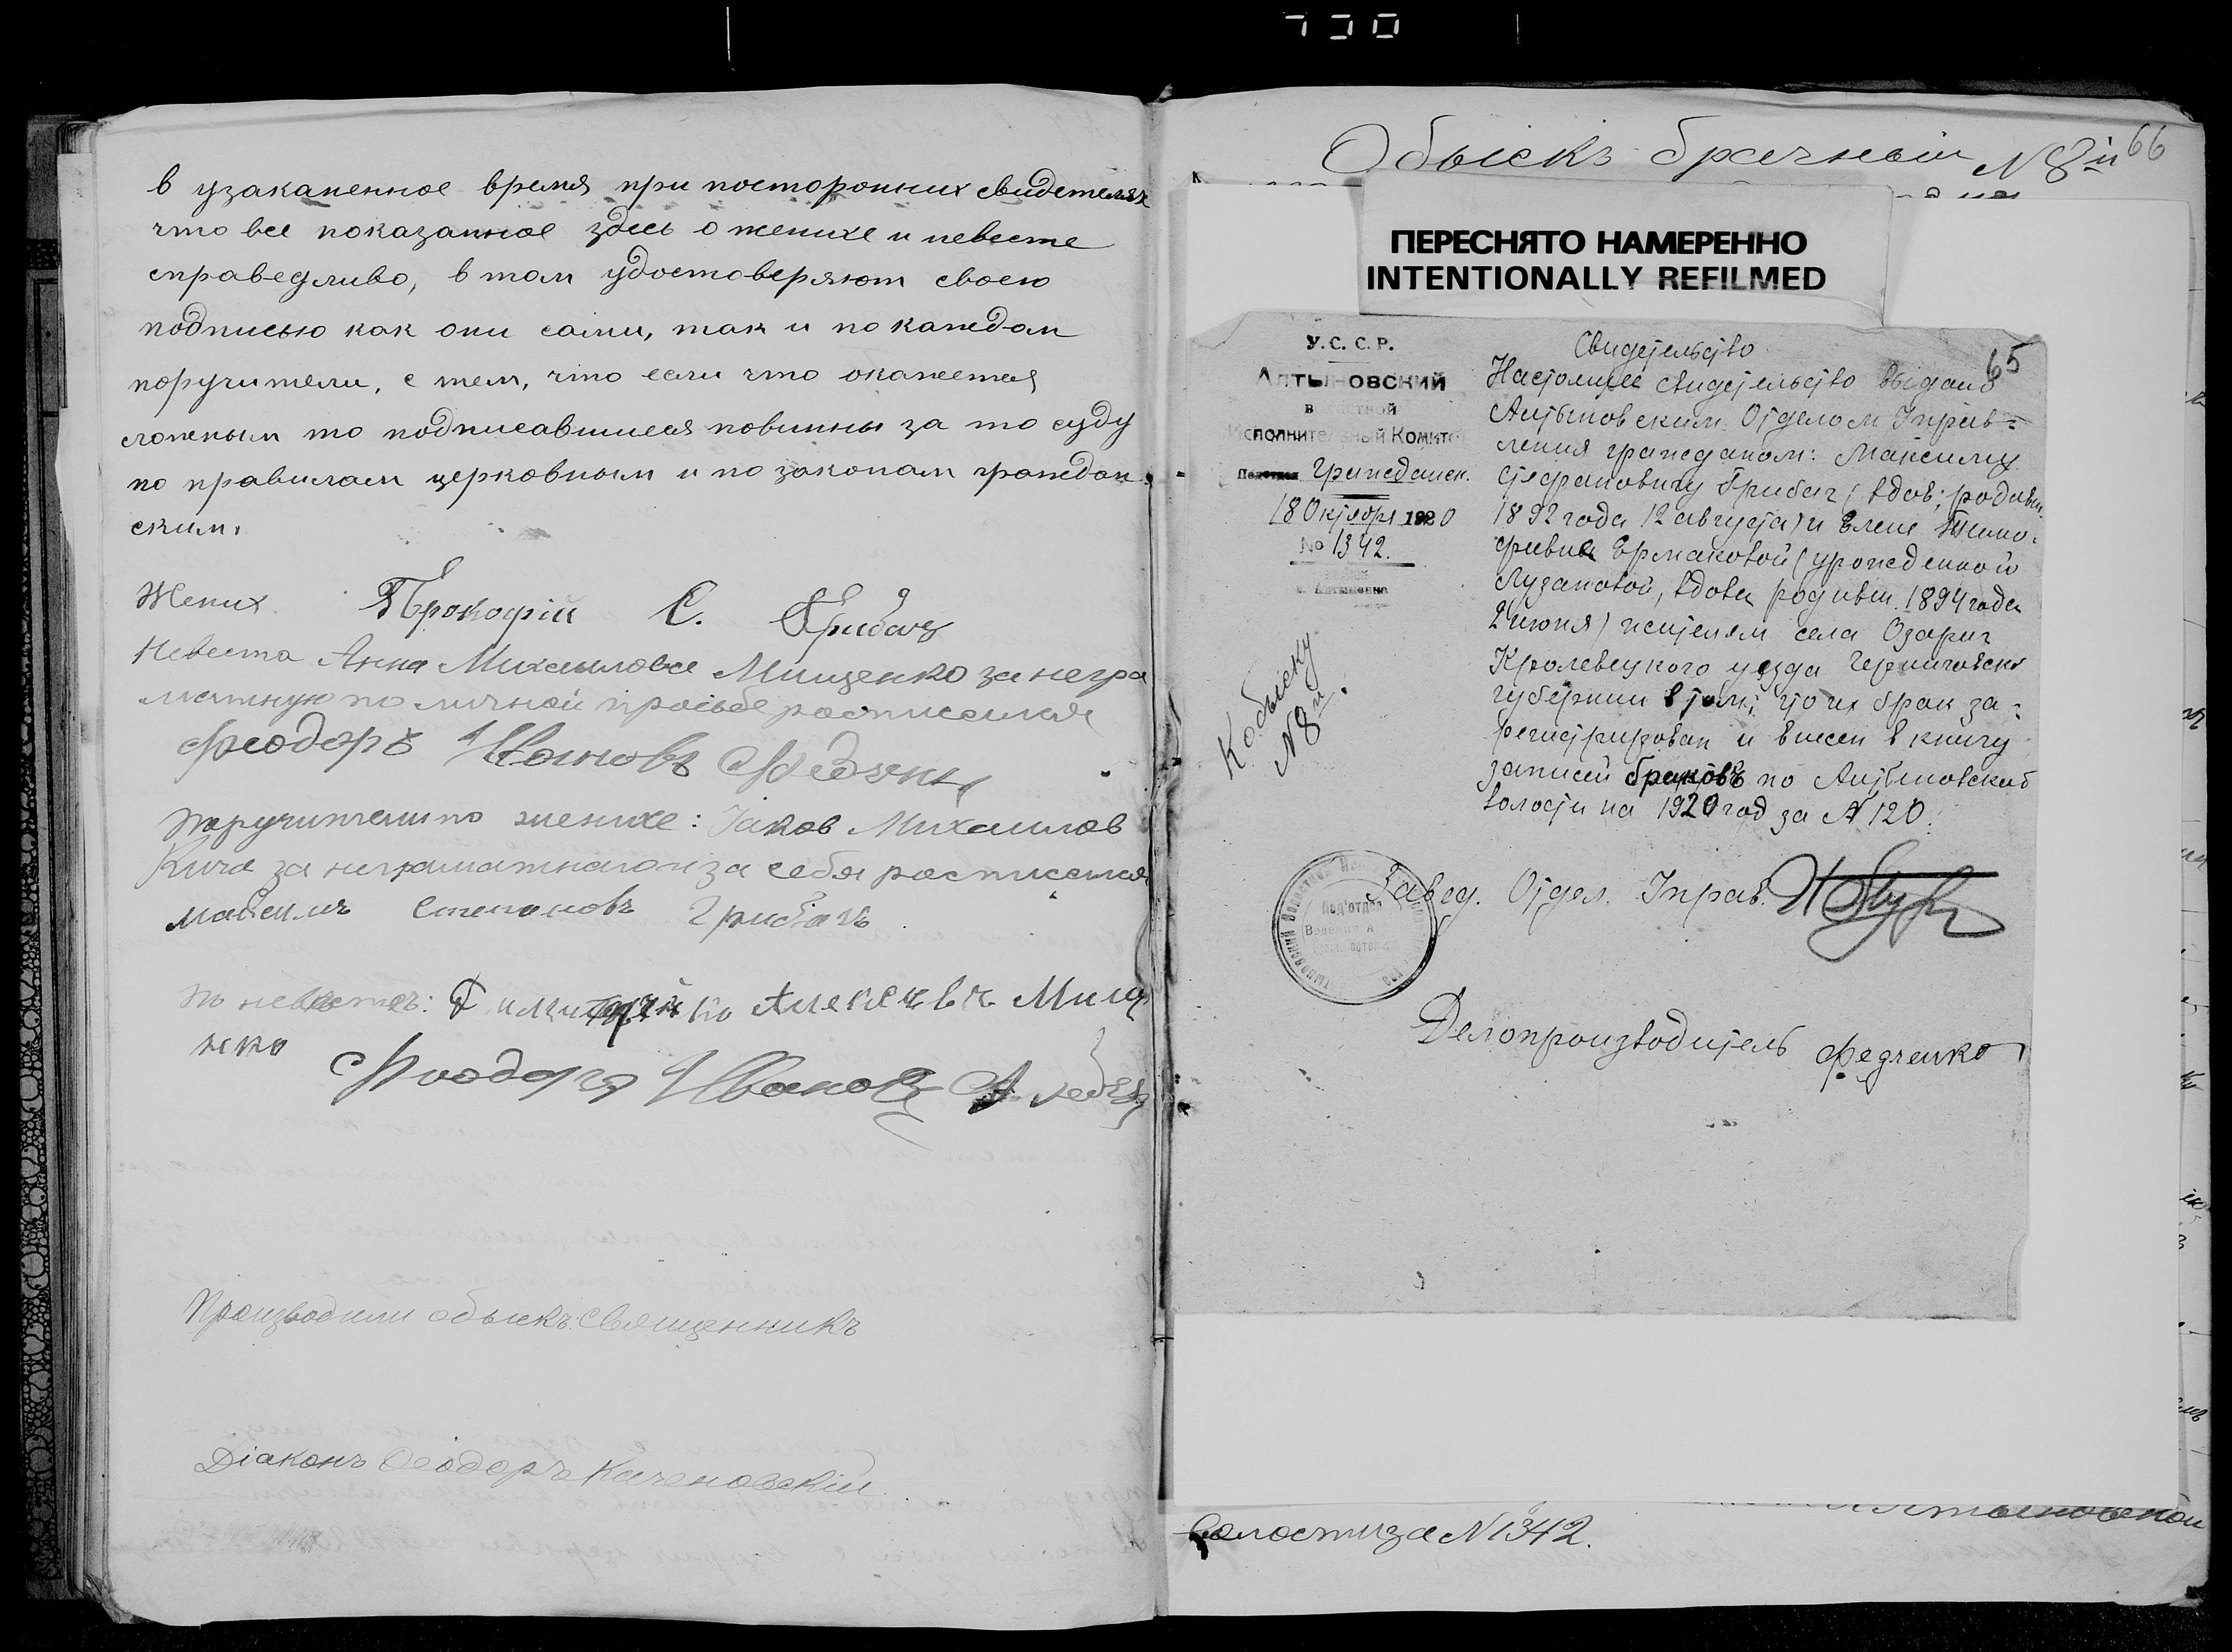 в узаконенное время при посторонних свидетелях
что все показанное здесь о женихе и невесте
справедливо, в том удостоверяют своею
подписью как они сами, так и по каждом
поручители, с тем, что если что окажется
ложным то подписавшиеся повинны за то суду
по правилам церковным и по законам граждан-
ским.
Жених Прокофій С. Грибач
Невеста Анна Михаиловна Мищенко за негра
мотную по личной просьбе росписался
Феодоръ Ивановъ
Поручители по женихе: Іаков Михаилов
Кича за неграматнаго и за себя росписался
Максимъ Степановъ Грибачъ
по невестъ: Алексѣевъ Мище
нко
Феодоръ Ивановъ
Производили обыскъ: Священникъ
Діаконъ Феодоръ Каченовскій
730
Обыскъ брачный N 8й 66
ПЕРЕСНЯТО НАМЕРЕННО
INTENTIONALLY REFILMED
У.С.С.Р.
Алтыновский
Исполнительный Комитет
Гражданск.
18 Октября 1920
No 1342.
К обыску
N 8й.
65
Свидетельство
Настоящее свидетельство выдано
Алтыновским Отделом Управ-
ления гражданам: Максиму
Стефановичу Грибач (вдов; родивш.
1892 года 12 августа) и Елене Тимо-
феевне Ермаковой (урожденной
Лузановой, вдова родивш. 1894 года
2 июня) жителям села Озарич
Кролевецкого уезда Черниговской
губернии в том, что их брак за-
регистрирован и внесен в книгу
записей браковъ по Алтыновской
волости на 1920 год за N 120.
Завед. Отдел. Управ.
Делопроизводитель Федченко
Алтыновской
волости за N 1342.